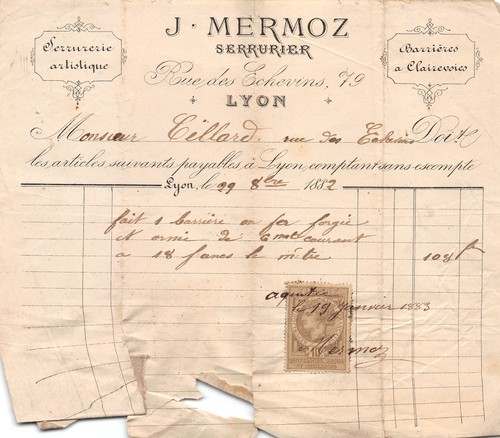 J. MERMOZ
SERRURIER
Serrurerie
artistique
Barrières
a Clairevoies
Rue des Echevins, 79
LYON
Monsieur Céllard rue des Echevins Doit
les articles suivants payables à Lyon, comptant sans escompte
Lyon, le 29 8bre 1882
fait 1 barrière en fer forgée
N ornie de 6 mt courant
a 18 fancs le mètre 108 f
aquitté
le 19 janvier 1883
Mermoz
10